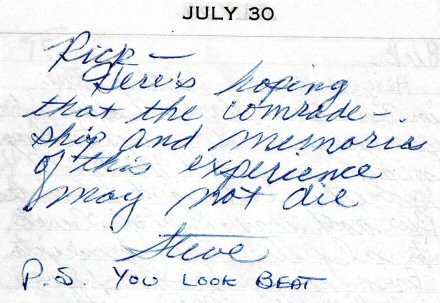 JULY 30
Rick —
Here's hoping
that the comrade-
ship and memories
of this experience
may not die
Steve
P.S. YOU LOOK BEAT